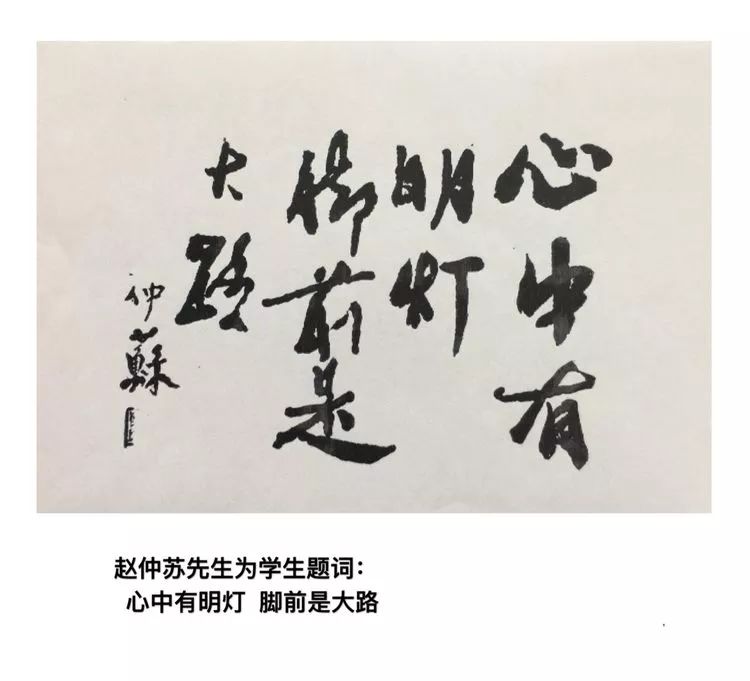 心中有
明灯
脚前是
大路
仲蘇
赵仲苏先生为学生题词：
心中有明灯 脚前是大路